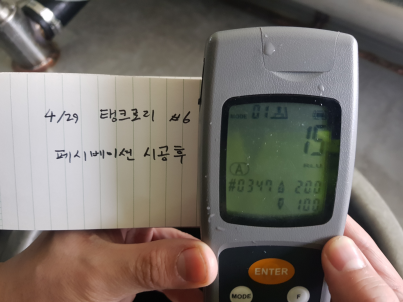 4/29 탱크로리 #6
페시베이션 시공후
01
15
A
#0347 200
100
ENTER
MODE
P